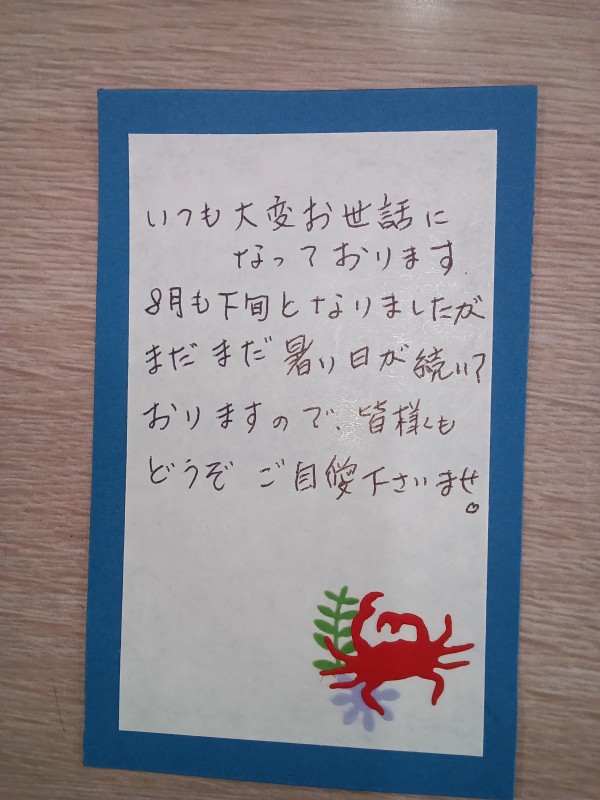 いつも大変お世話に
なっております.
8月も下旬となりましたが
まだまだ暑い日が続いて
おりますので、皆様も
どうぞ ご自愛下さいませ。